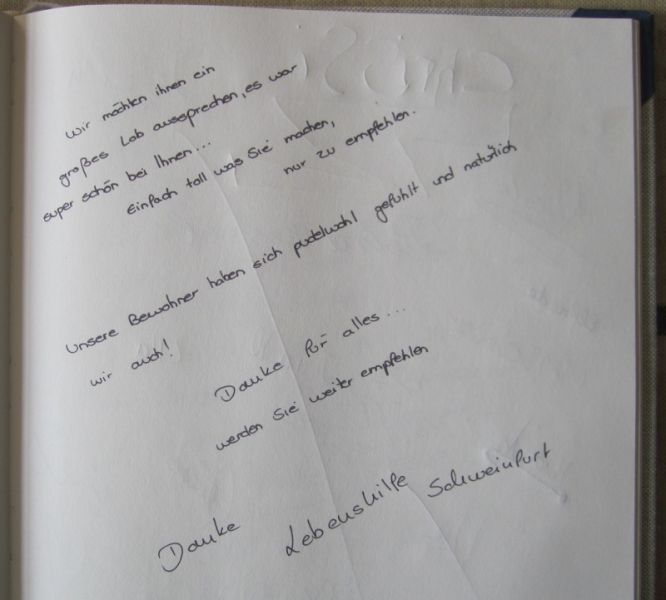 Wir möchten ihnen ein
großes Lob aussprechen, es war
super schön bei Ihnen...
einfach toll was Sie machen,
nur zu empfehlen.
Unsere Bewohner haben sich pudelwohl gefühlt und natürlich
wir auch!
Danke für alles...
werden Sie weiter empfehlen
Danke Lebenshilfe Schweinfurt